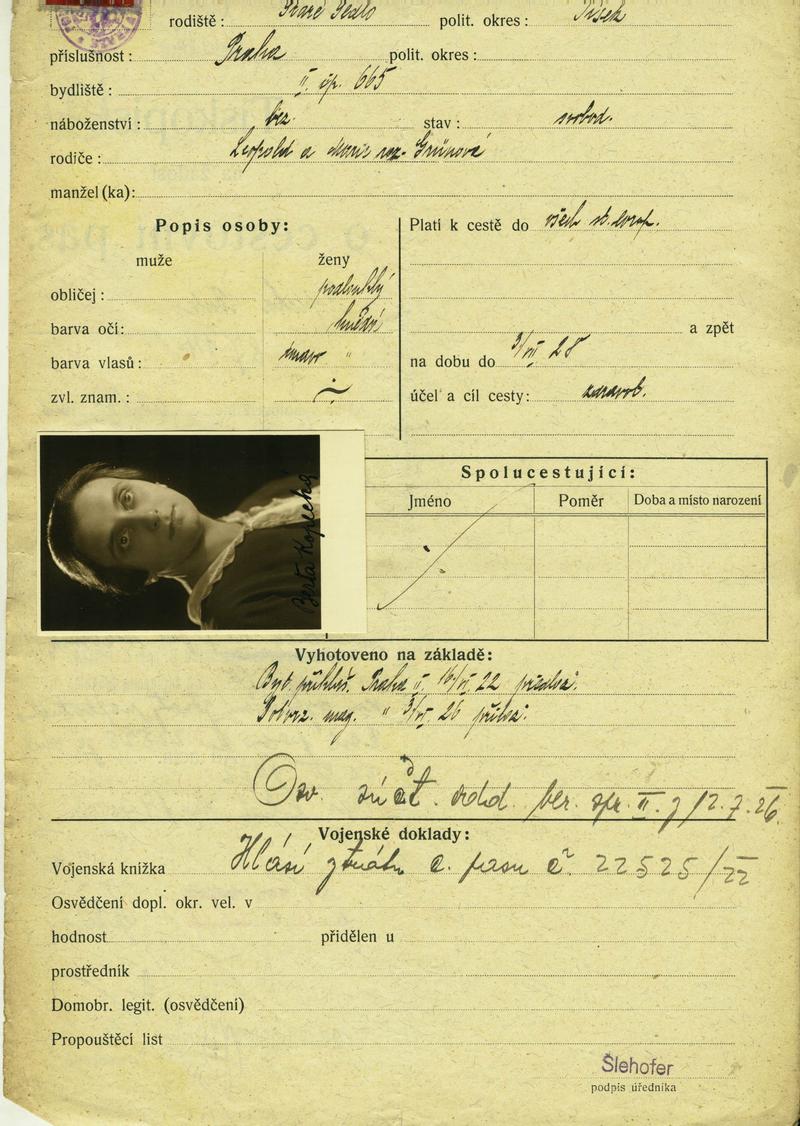 rodiště: Staré Sedlo polit. okres: Písek
příslušnost: Praha polit. okres:
bydliště: II čp. 665
náboženství: bez stav: svobod.
rodiče: Leopold a Marie roz. Grünová
manžel (ka):
Popis osoby:
muže ženy
obličej: podlouhlý
barva očí: hnědé
barva vlasů: tmavo "
zvl. znam.: ÷
Platí k cestě do všech st. evrop.
a zpět
na dobu do 3/VII 28
účel a cíl cesty: zdravot.
Berta Kopecká
Spolucestující:
Jméno Poměr Doba a místo narození
Vyhotoveno na základě:
Byt. přihláš. Praha II. 16/VI 22 předlož.
Potvrz. mag. " 3/VII 26 přilož.
Osv. súčt. odd. ber. spr. II. 12.7.26
Vojenské doklady:
Vojenská knížka Hlásí ztrátu c. pasu č. 22525/22
Osvědčení dopl. okr. vel. v
hodnost přidělen u
prostředník
Domobr. legit. (osvědčení)
Propouštěcí list
Šlehofer
podpis úředníka